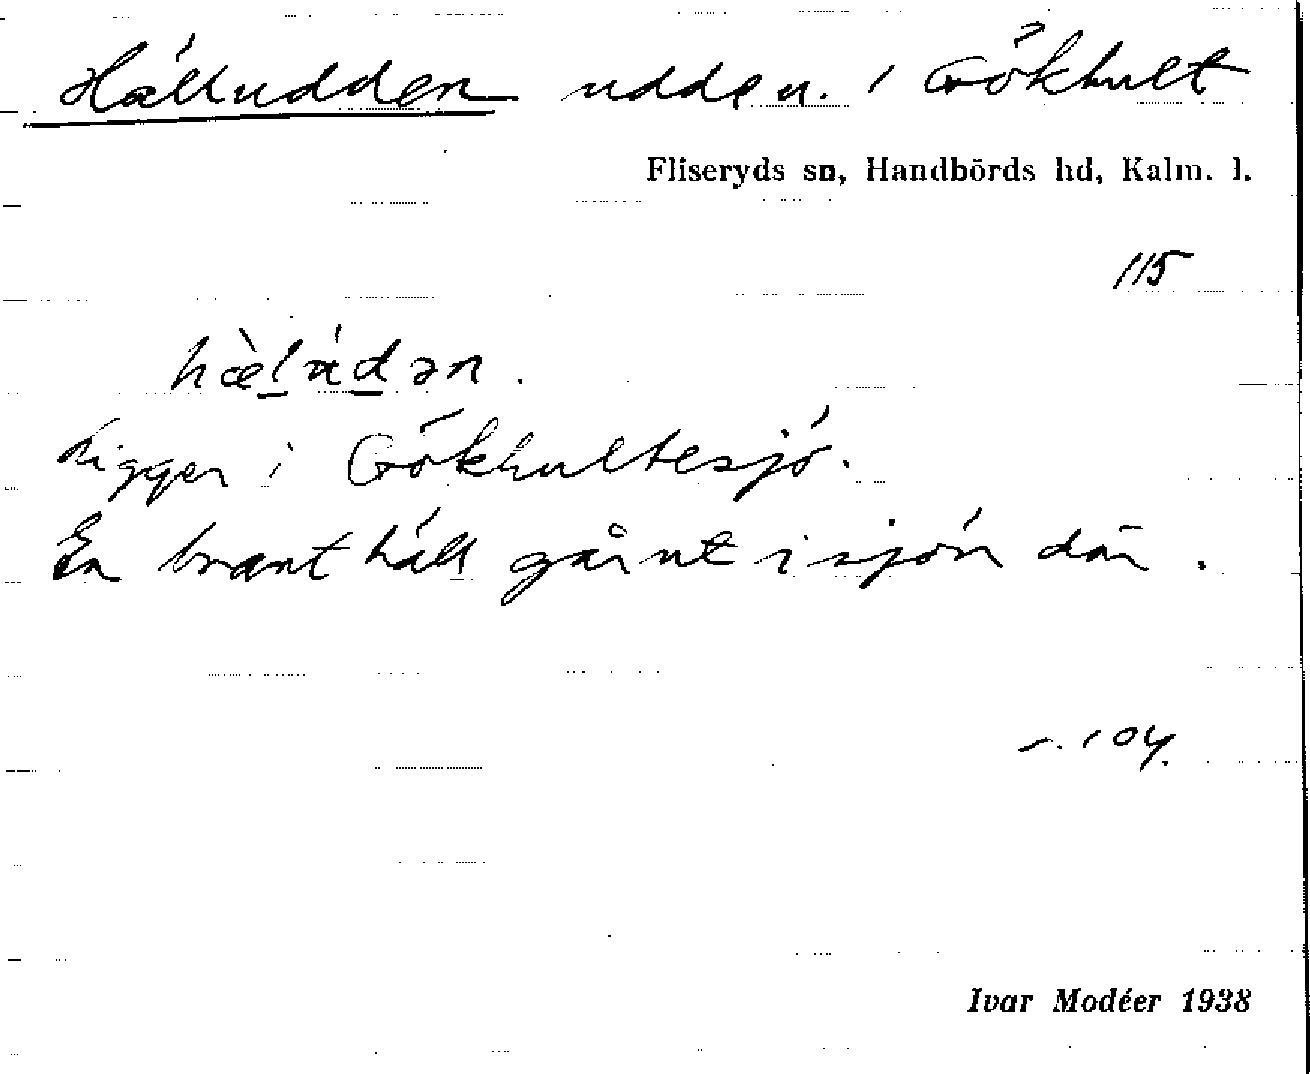 Hälludden udde n. i Gökhult
Fliseryds sn, Handbörds hd, Kalm. l.
115
hæ̀lúdən.
Ligger i Gökhultesjö.
En brant häll går ut i sjön där.
104.
Ivar Modéer 1938